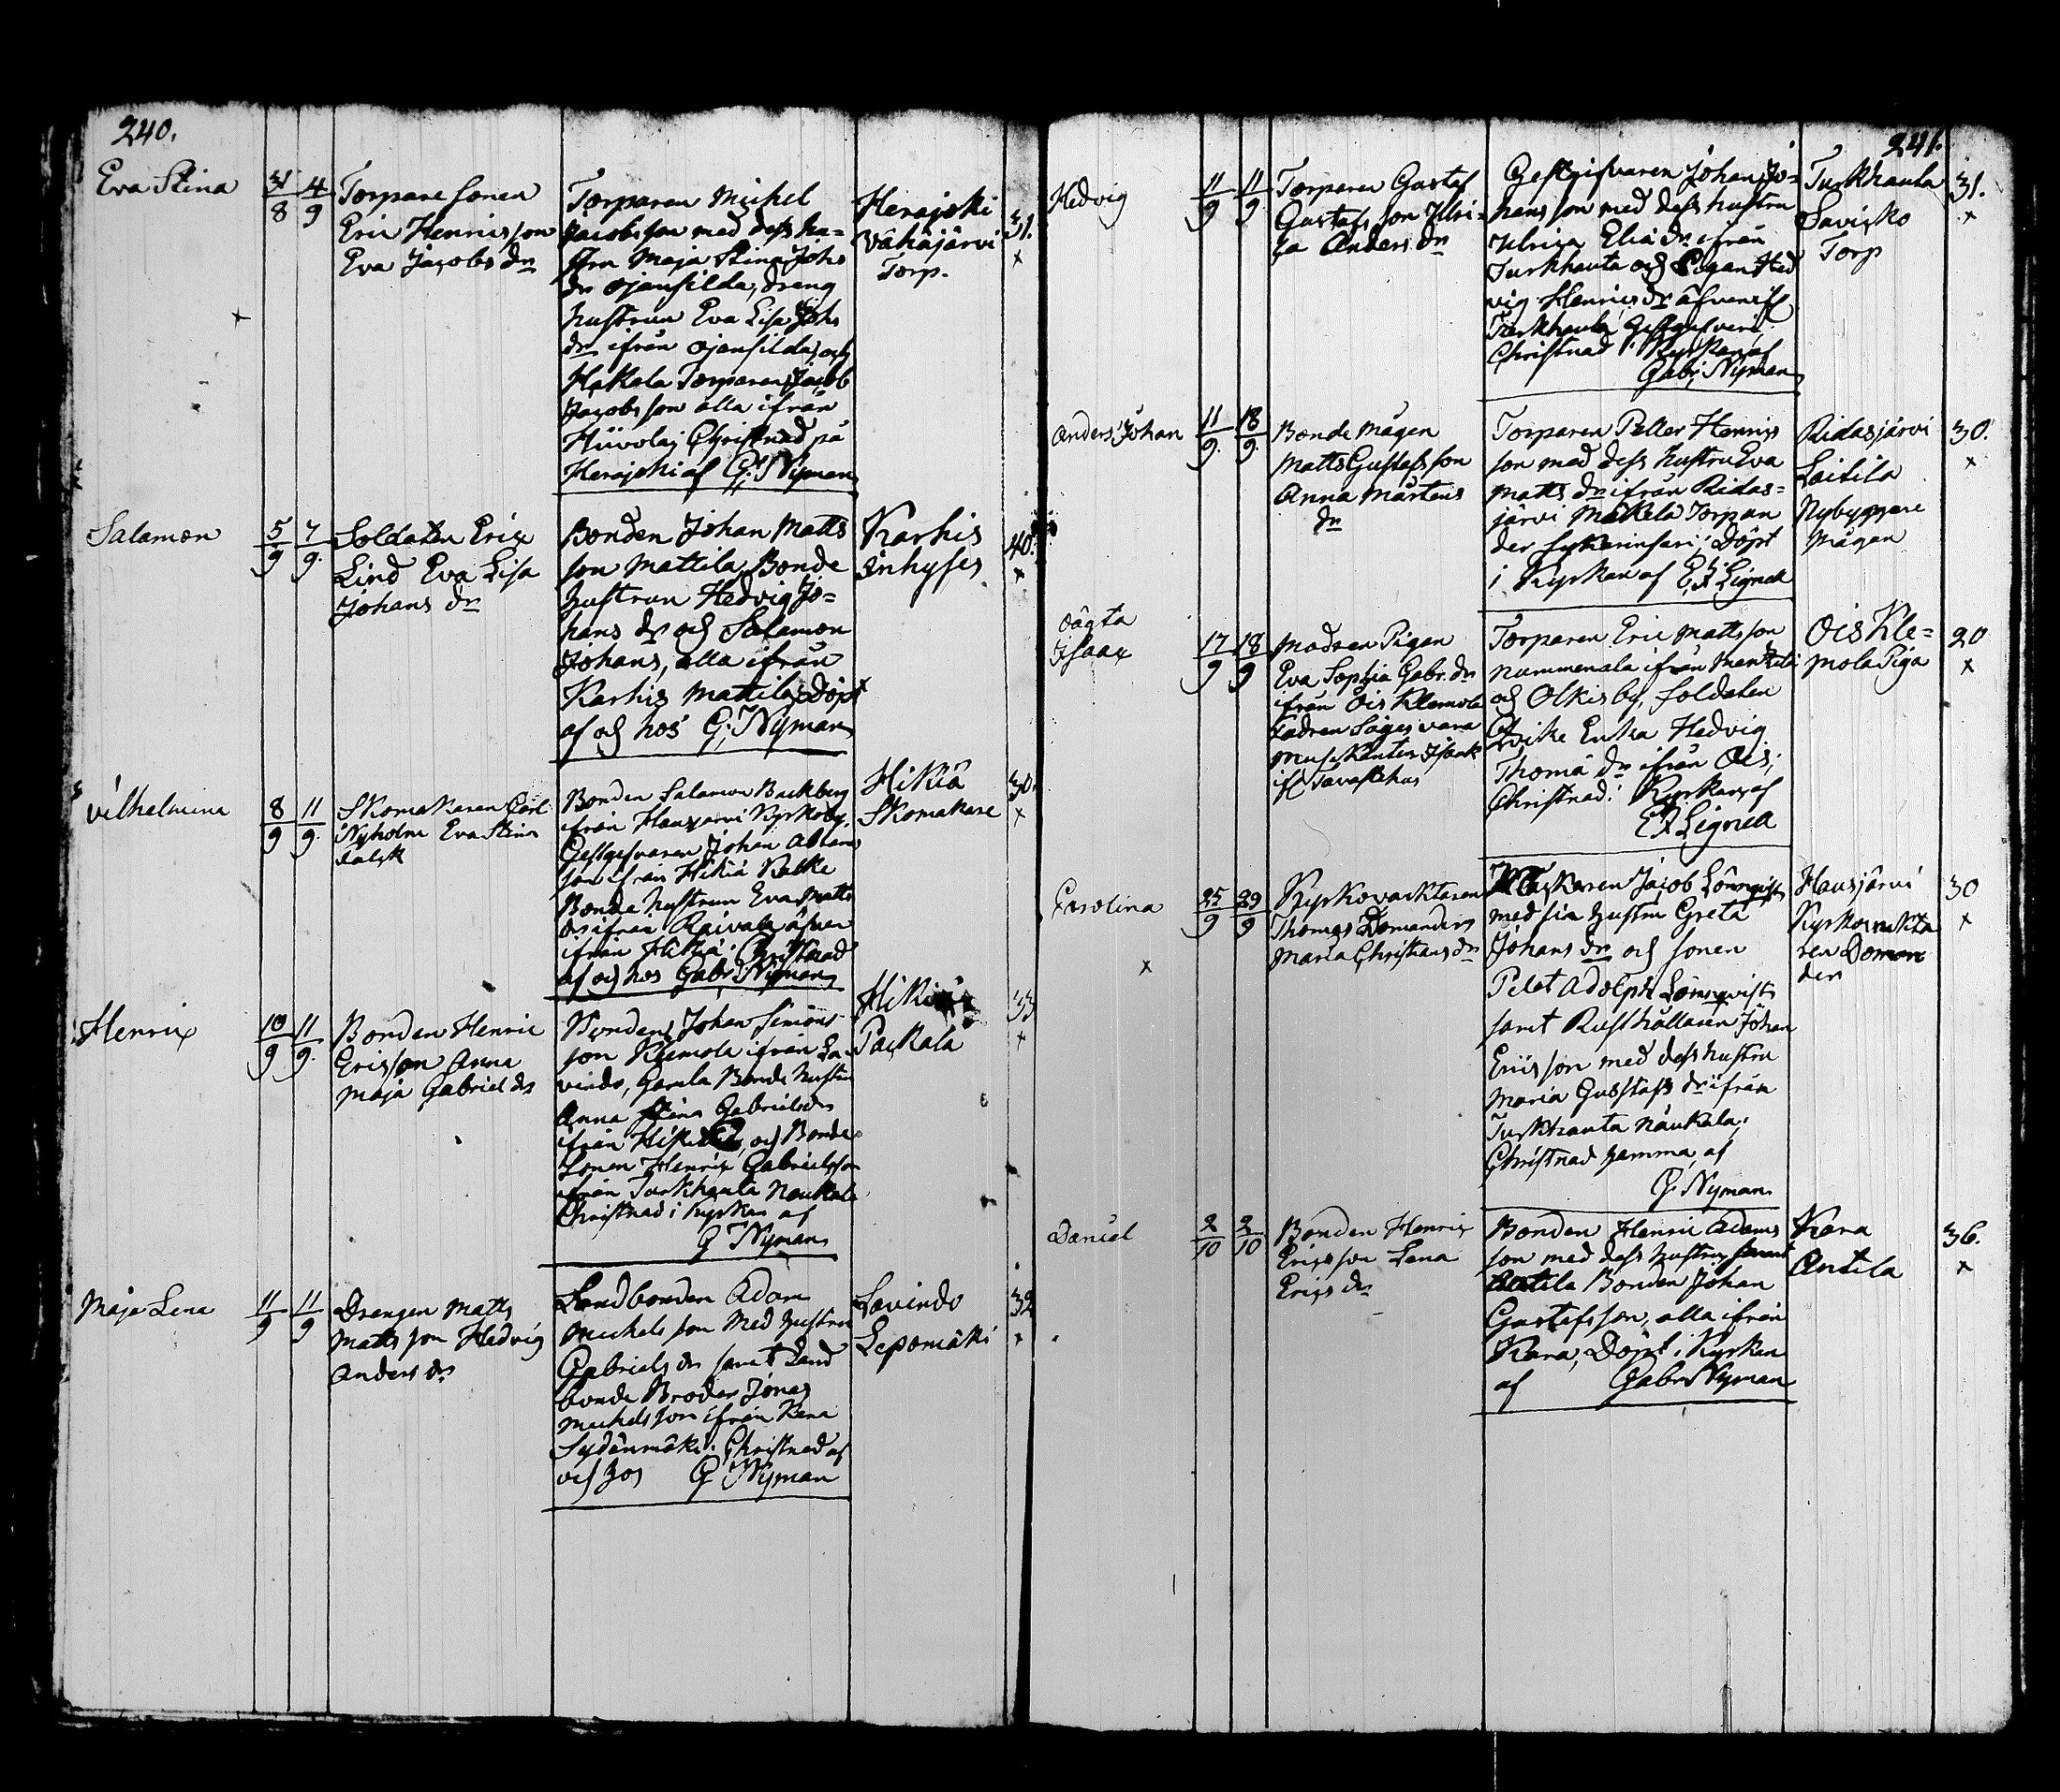 240.
Eva Stina
31/8 4/9
Torpare sonen
Eric Henricsson
Eva Jacobs dr
Torparen Michel
Jacobsson med dess hu-
stru Maja Stina Johs
dr Ojansilda, dreng
hustrun Eva Lisa Johs
dr ifrån Ojansilda, och
Hakala Torparen Jacob
Jacobsson alla ifrån
Hiivola; Christnad på
Herajoki af G: Nyman
Herajoki
Vähäjärvi
Torp.
31.
x
Salamon
5/9 7/9.
Soldaten Eric
Lind Eva Lisa
Johans dr
Bonden Johan Matts
son Mattila, Bonde
hustrun Hedvig Jo=
hans dr och Salamon
Johans, alla ifrån
Karhis Mattila, Döpt
af och hos G: Nyman
Karhis
inhyses
40.
x
Vilhelmina
8/9 11/9.
Skomakaren Carl
Nyholm Eva Stina
Falck
Bonden Salamon Backberg
ifrån Hausjärvi Kyrkoby,
Gestgifvaren Johan Adams
son ifrån Hikiä
Bonde hustrun Eva Matts
dr ifrån äfven
ifrån Hikiä. Christnad
af och hos Gabr: Nyman
Hikiä
Skomakare
30.
x
Henric
10/9 11/9.
Bonden Henric
Ericsson Anna
Maja Gabriels dr
Bonden Johan Simons
son Klemola ifrån La-
vindo, Gamla Bonde hustru
Anna Stina Gabriels dr
ifrån och Bonde
Sonen Henric Gabrielsson
ifrån Turkhauta Naukala
Christnad i Kyrkan af
G Nyman
Hikiä
Packala
33
x
Maja Lena
11/9 11/9
Drengen Matts
Matts son Hedvig
Anders dr
Landbonden Adam
Michels son Med hustru
Gabriels dr samt Land
bonde Broder Jonas
Michelsson ifrån Kara
Sydänmäki. Christnad af
och hos G Nyman
Lavindo
Lepomäki
32
x
241.
Hedvig
11/9 11/9
Torparen Gustaf
Gustafs son Ulri-
ca Anders dr
Gestgifvaren Johan Jo-
hans son med dess hustru
Ulrica Eliä dr ifrån
Turkhauta och Pigan Hed
vig Henrics dr äfven
Turkhauta Gestgifveri,
Christnad i Kyrkan af
Gabr: Nyman
Turkhauta
Savisko
Torp
31.
x
Anders Johan
11/9. 18/9.
Bonde Mågen
Matts Gustafs son
Anna Mårtens
dr
Torparen Petter Henrics
son med dess hustru Eva
Matts dr ifrån Ridas=
järvi Mäkela Torpan
der Döpt
i Kyrkan af E: Lignell
Ridasjärvi
Laitila
Nybyggare
Mågen
30.
x
Oägta
Isaac
17/9 18/9
Modren Pigan
Eva Sophia Gabr. dr
ifrån Ois Klemola
Fadren Säges vara
Musikanten Isaak
ifr Tavastehus
Torparen Eric Mattsson
Nummenala ifrån
och Olkis by, Soldaten
Enka Hedvig
Thomä dr ifrån Ois;
Christnad i Kyrkan af
E: Lignell
Ois Kle=
mola Piga
20
x
Carolina
25/9 29/9
Kyrkovacktaren
Thomas Domander
Maria Christians dr
Jacob Lönnqvist
med sin hustru Greta
Johans dr och sonen
Adolph Lönnqvist
samt Rusthållaren Johan
Ericsson med dess hustru
Maria Gustafs dr ifrån
Turkhauta Näukala;
Christnad hemma, af
G. Nyman
Hausjärvi
Kyrkovackta
ren Doman
der
30
x
Daniel
2/10 2/10
Bonden Henric
Ericsson Lena
Erics dr
Bonden Henric Adams
son med dess hustru samt
Antila Bonden Johan
Gustafsson, alla ifrån
Kara, Döpt i Kyrkan
af Gabr Nyman
Kara
Antila
36.
x